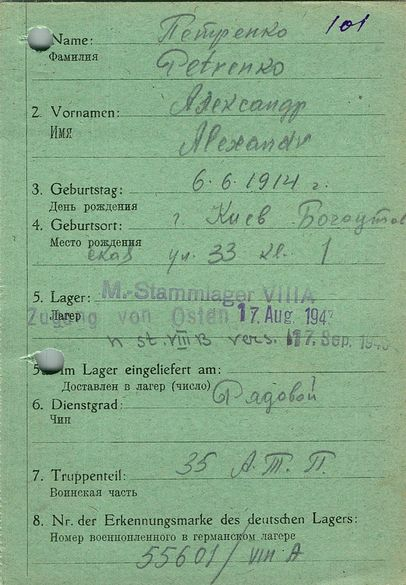 101
Name: Петренко
Фамилия Petrenko
2. Vornamen: Александр
Имя Alexandr
3. Geburtstag: 6.6.1914 г.
День рождения
4. Geburtsort: г. Киев Богоутов
Место рождения ская ул. 33 кв. 1
5. Lager: M.-Stammlager VIII A
Лагер Zugang von Osten 17. Aug. 194
n st. VIII B vers. 17. Sep. 194
Im Lager eingeliefert am:
Доставлен в лагер (число)
6. Dienstgrad: Рядовой
Чин
7. Truppenteil: 35 А.Т.П.
Воинская часть
8. Nr. der Erkennungsmarke des deutschen Lagers:
Номер военнопленного в германском лагере
55601/VIII A